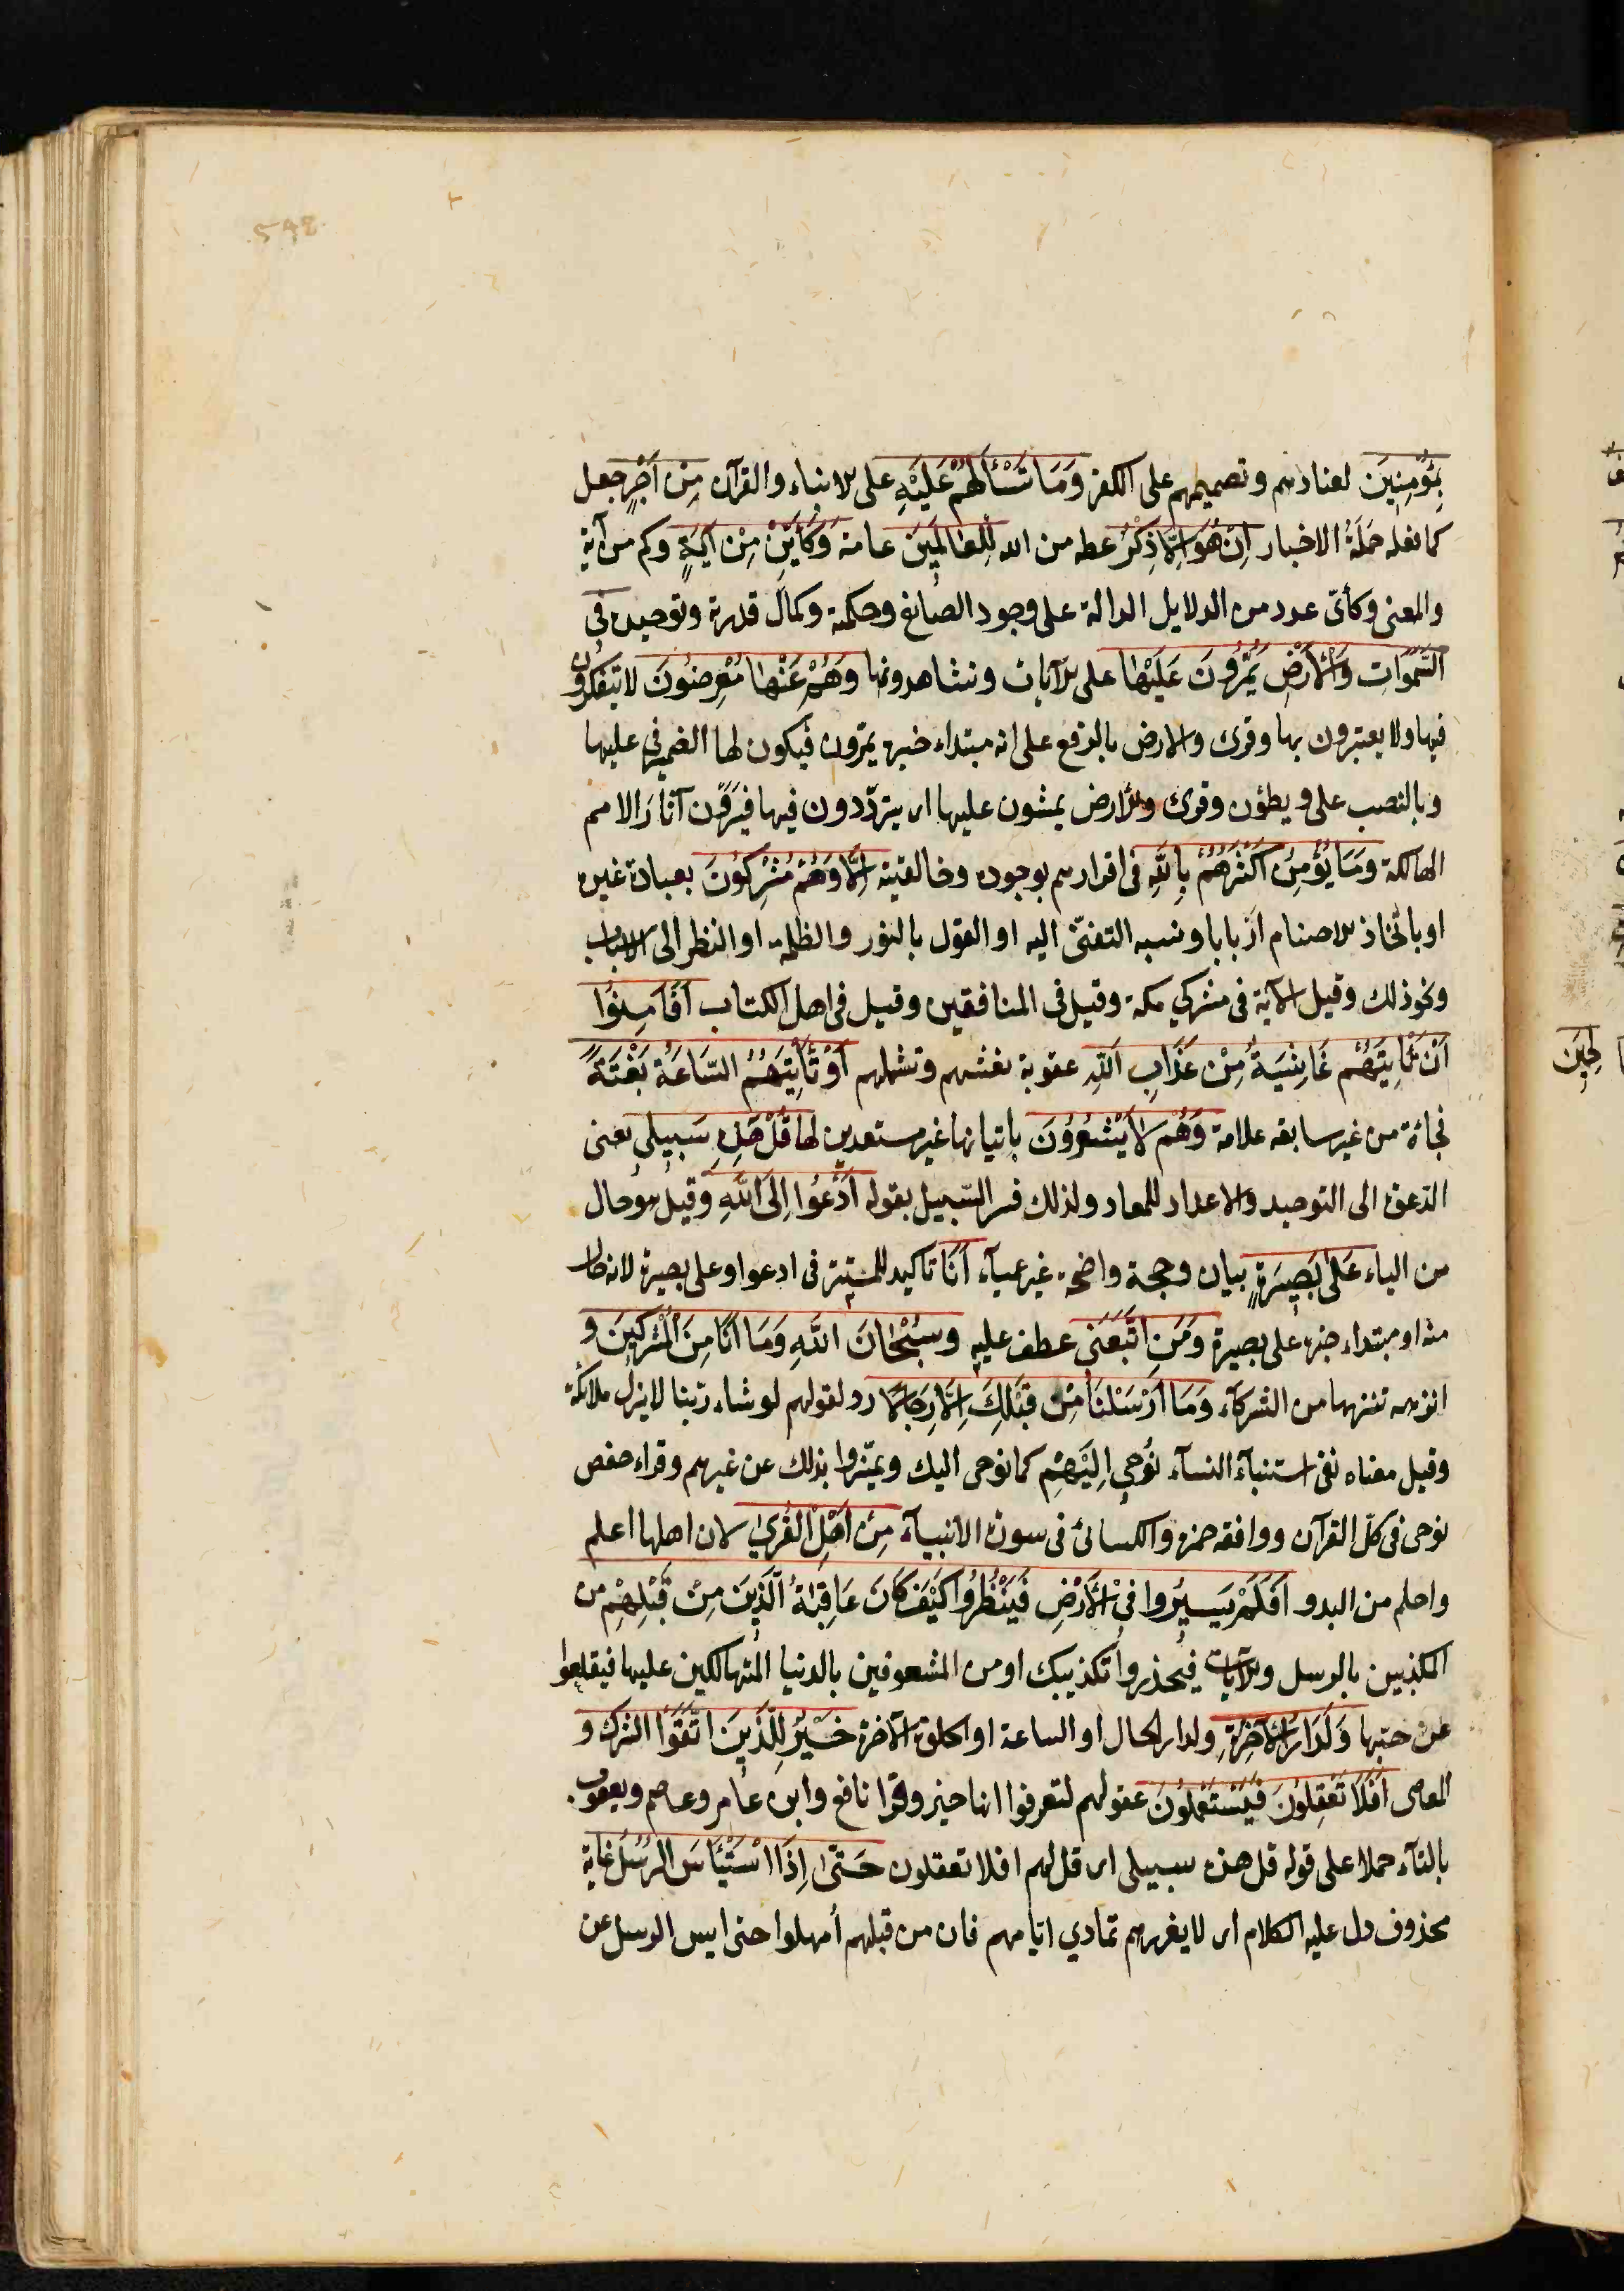 542
بِمُؤْمِنِينَ لعنادهم وتصميمهم على الكفر وَمَا تَسْأَلُهُمْ عَلَيْهِ على الانباء والقرآن مِنْ اَجْرٍ جعل
كما يفعله حَمَلَةُ الاخبار اِنْ هُوَ اِلَّا ذِكْرٌ عظة من الله لِلْعَالَمِينَ عامة وَكَأَيِّنْ مِنْ آيَةٍ وكم من آية
والمعنى وكأى عدد من الدلايل الدالة على وجود الصانع وحكمته وكمال قدرته وتوحيده فى
السَّمٰوَاتِ وَالْأَرْضِ يَمُرُّونَ عَلَيْهَا على الآيات ويشاهدونها وَهُمْ عَنْهَا مُعْرِضُونَ لا يتفكرون
فيها ولا يعتبرون بها وقرئ والارض بالرفع على انه مبتداء خبره يمرّون فيكون لها الضمير فى عليها
وبالنصب على ويطؤن وقرئ والارض يمشون عليها اى يتردّدون فيها فيرون آثار الامم
الهالكة وَمَا يُؤْمِنُ اَكْثَرُهُمْ بِاللّٰهِ فى اقرارهم بوجوده وخالقيته اِلَّا وَهُمْ مُشْرِكُونَ بعبادة غيره
او باتّخاذ الاصنام اربابا ونسبة التبنىّ اليه او القول بالنور والظلمة او النظر الى الاسباب
ونحو ذلك وقيل الآية فى مشركي مكة وقيل فى المنافقين وقيل فى اهل الكتاب اَفَاَمِنُوا
اَنْ تَأْتِيَهُمْ غَاشِيَةٌ مِنْ عَذَابِ اللّٰهِ عقوبة تغشهم وتشملهم اَوْ تَأْتِيَهُمُ السَّاعَةُ بَغْتَةً
فجاءة من غير سابقة علامة وَهُمْ لَا يَشْعُرُونَ باتيانها غير مستعدين لها قُلْ هٰذِهِ سَبِيلِي يعنى
الدعوة الى التوحيد والاعداد للمعاد ولذلك فسر السّبيل بقوله اَدْعُوا اِلَى اللّٰهِ وقيل هو حال
من الياء عَلٰى بَصِيرَةٍ بيان وحجة واضحة غير عمياء اَنَا تاكيد للمستتر فى ادعوا وعلى بصيرة لانه حال
منه او مبتداء خبره على بصيرة وَمَنِ اتَّبَعَنِي عطف عليه وَسُبْحَانَ اللّٰهِ وَمَا اَنَا مِنَ الْمُشْرِكِينَ و
انزهه تنزيها من الشركاء وَمَا اَرْسَلْنَا مِنْ قَبْلِكَ اِلَّا رِجَالًا رد لقولهم لو شاء ربنا لانزل ملائكة
وقيل معناه نفى استنباء النساء نُوحِي اِلَيْهِمْ كما نوحى اليك ويميّزوا بذلك عن غيرهم وقراء حفص
نوحى فى كل القرآن ووافقه حمزة والكسائى فى سورة الانبياء مِنْ اَهْلِ الْقُرٰى لان اهلها اعلم
واحلم من البدو اَفَلَمْ يَسِيرُوا فِي الْأَرْضِ فَيَنْظُرُوا كَيْفَ كَانَ عَاقِبَةُ الَّذِينَ مِنْ قَبْلِهِمْ من
المكذبين بالرسل والآيات فيحذروا تكذيبك او من المشعوفين بالدنيا المتهالكين عليها فيقلعوا
عن حبّها وَلَدَارُ الْآخِرَةِ ولدار الحال او الساعة او الحلوة الآخرة خَيْرٌ لِلَّذِينَ اتَّقَوْا الشرك و
المعاصى اَفَلَا تَعْقِلُونَ فيستعملون عقولهم لتعرفوا انها خير وقرأ نافع وابن عامر وعاصم ويعقوب
بالتاء حملا على قوله قل هذه سبيلى اى قل لهم افلا تعقلون حَتّٰى اِذَا اسْتَيْأَسَ الرُّسُلُ غاية
محذوف دل عليه الكلام اى لا يغررهم تمادي ايامهم فان من قبلهم اُمهلوا حتى ايس الرسل عن